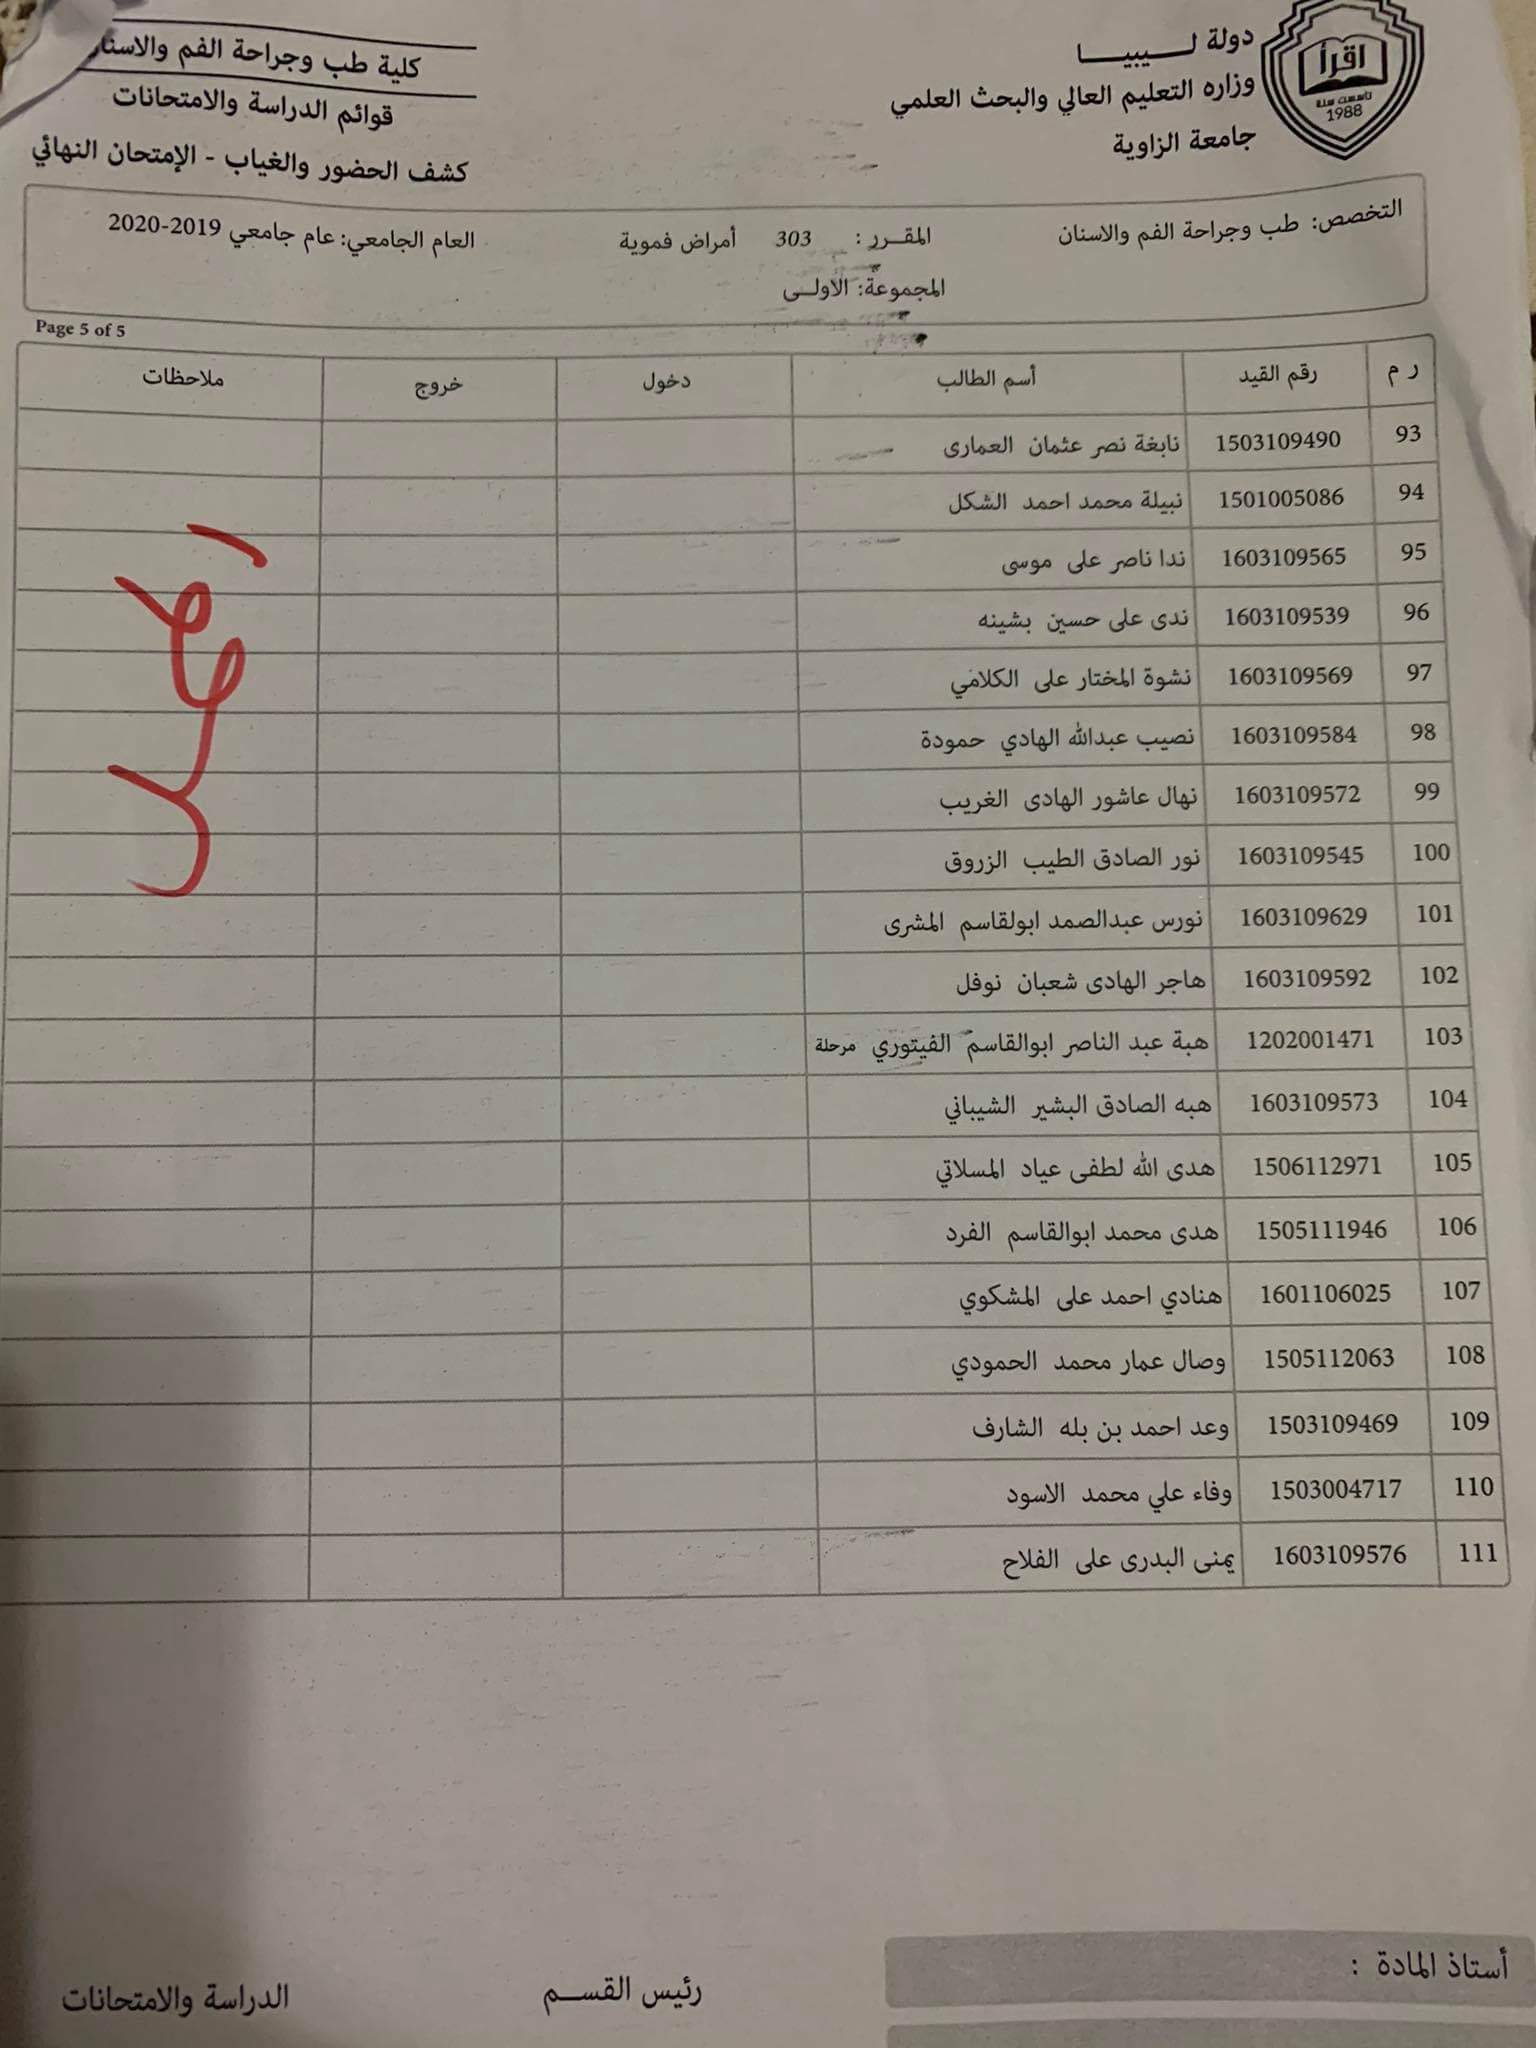 اقرأ
تأسست سنة
1988
دولة لـــــيبيـــا
وزاره التعليم العالي والبحث العلمي
جامعة الزاوية
كلية طب وجراحة الفم والاسنان
قوائم الدراسة والامتحانات
كشف الحضور والغياب - الإمتحان النهائي
التخصص: طب وجراحة الفم والاسنان المقـــرر : 303 أمراض فموية العام الجامعي: عام جامعي 2019-2020
المجموعة: الاولــى
Page 5 of 5
ر م رقم القيد أسم الطالب دخول خروج ملاحظات
93 1503109490 نابغة نصر عثمان العمارى
94 1501005086 نبيلة محمد احمد الشكل
95 1603109565 ندا ناصر على موسى
96 1603109539 ندى على حسين بشينه
97 1603109569 نشوة المختار على الكلامي
98 1603109584 نصيب عبدالله الهادي حمودة
99 1603109572 نهال عاشور الهادى الغريب
100 1603109545 نور الصادق الطيب الزروق
101 1603109629 نورس عبدالصمد ابولقاسم المشرى
102 1603109592 هاجر الهادى شعبان نوفل
103 1202001471 هبة عبد الناصر ابوالقاسم الفيتوري مرحلة
104 1603109573 هبه الصادق البشير الشيباني
105 1506112971 هدى الله لطفى عياد المسلاتي
106 1505111946 هدى محمد ابوالقاسم الفرد
107 1601106025 هنادي احمد على المشكوي
108 1505112063 وصال عمار محمد الحمودي
109 1503109469 وعد احمد بن بله الشارف
110 1503004717 وفاء علي محمد الاسود
111 1603109576 يمنى البدرى على الفلاح
أستاذ المادة :
رئيس القســـم
الدراسة والامتحانات